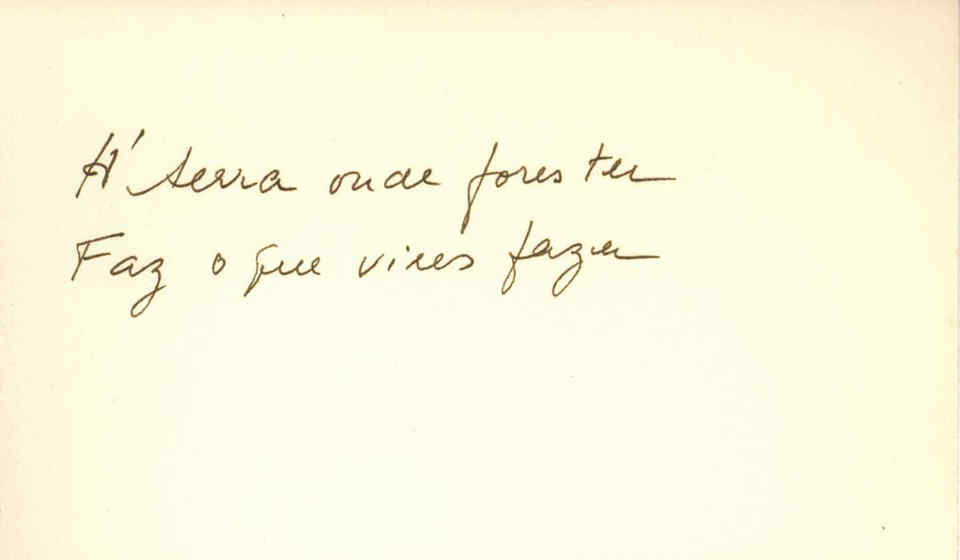 Á terra onde fores ter
Faz o que vires fazer